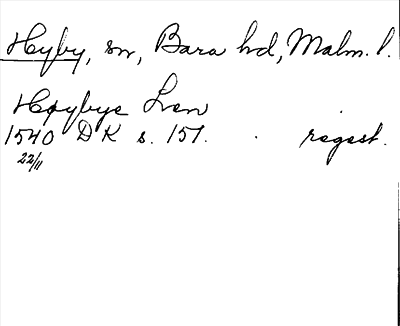 Hyby, sn, Bara hd, Malm. l.
Høybye Lven
1540 DK s. 157. regest.
22/11